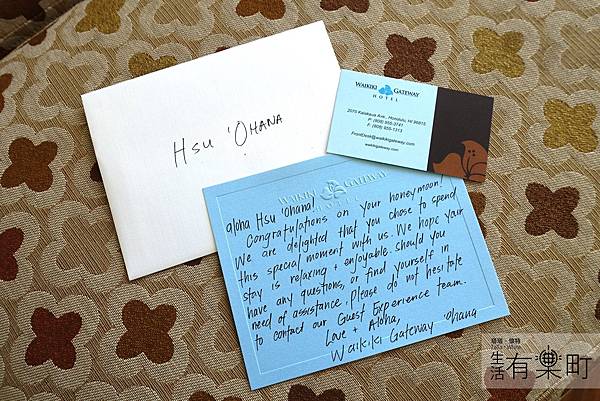 HSU 'OHANA
WAIKIKI GATEWAY
HOTEL
2070 Kalakaua Ave., Honolulu, HI 96815
P: (808) 955-3741
F: (808) 955-1313
FrontDesk@waikikigateway.com
waikikigateway.com
WAIKIKI GATEWAY
HOTEL
aloha Hsu 'ohana!
Congratulations on your honeymoon!
We are delighted that you chose to spend
this special moment with us. We hope your
stay is relaxing + enjoyable. Should you
have any questions, or find yourself in
need of assistance, please do not hesitate
to contact our Guest Experience team.
Love + Aloha,
Waikiki Gateway 'ohana
生活有樂町